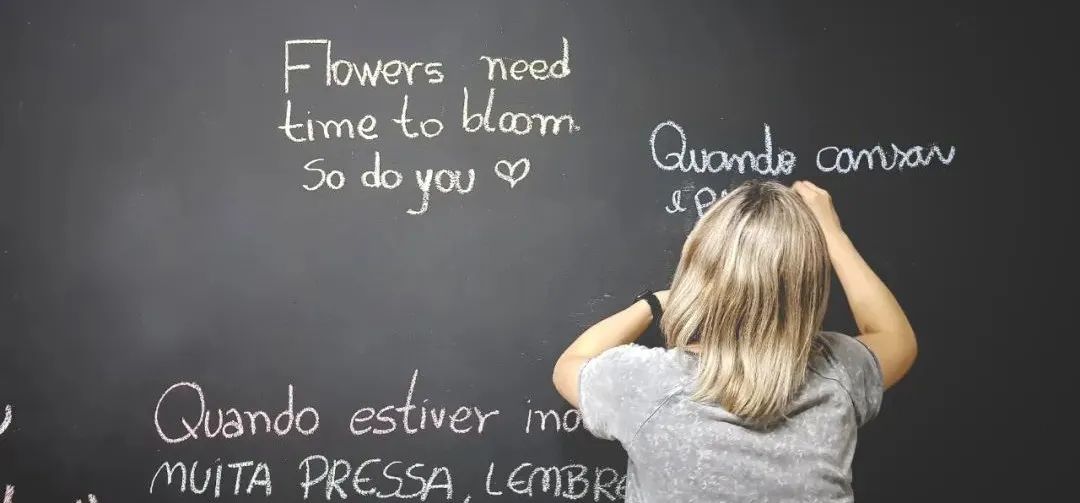 Flowers need
time to bloom.
So do you ♡
Quando cansar
Quando estiver
MUITA PRESSA, LEMBRE